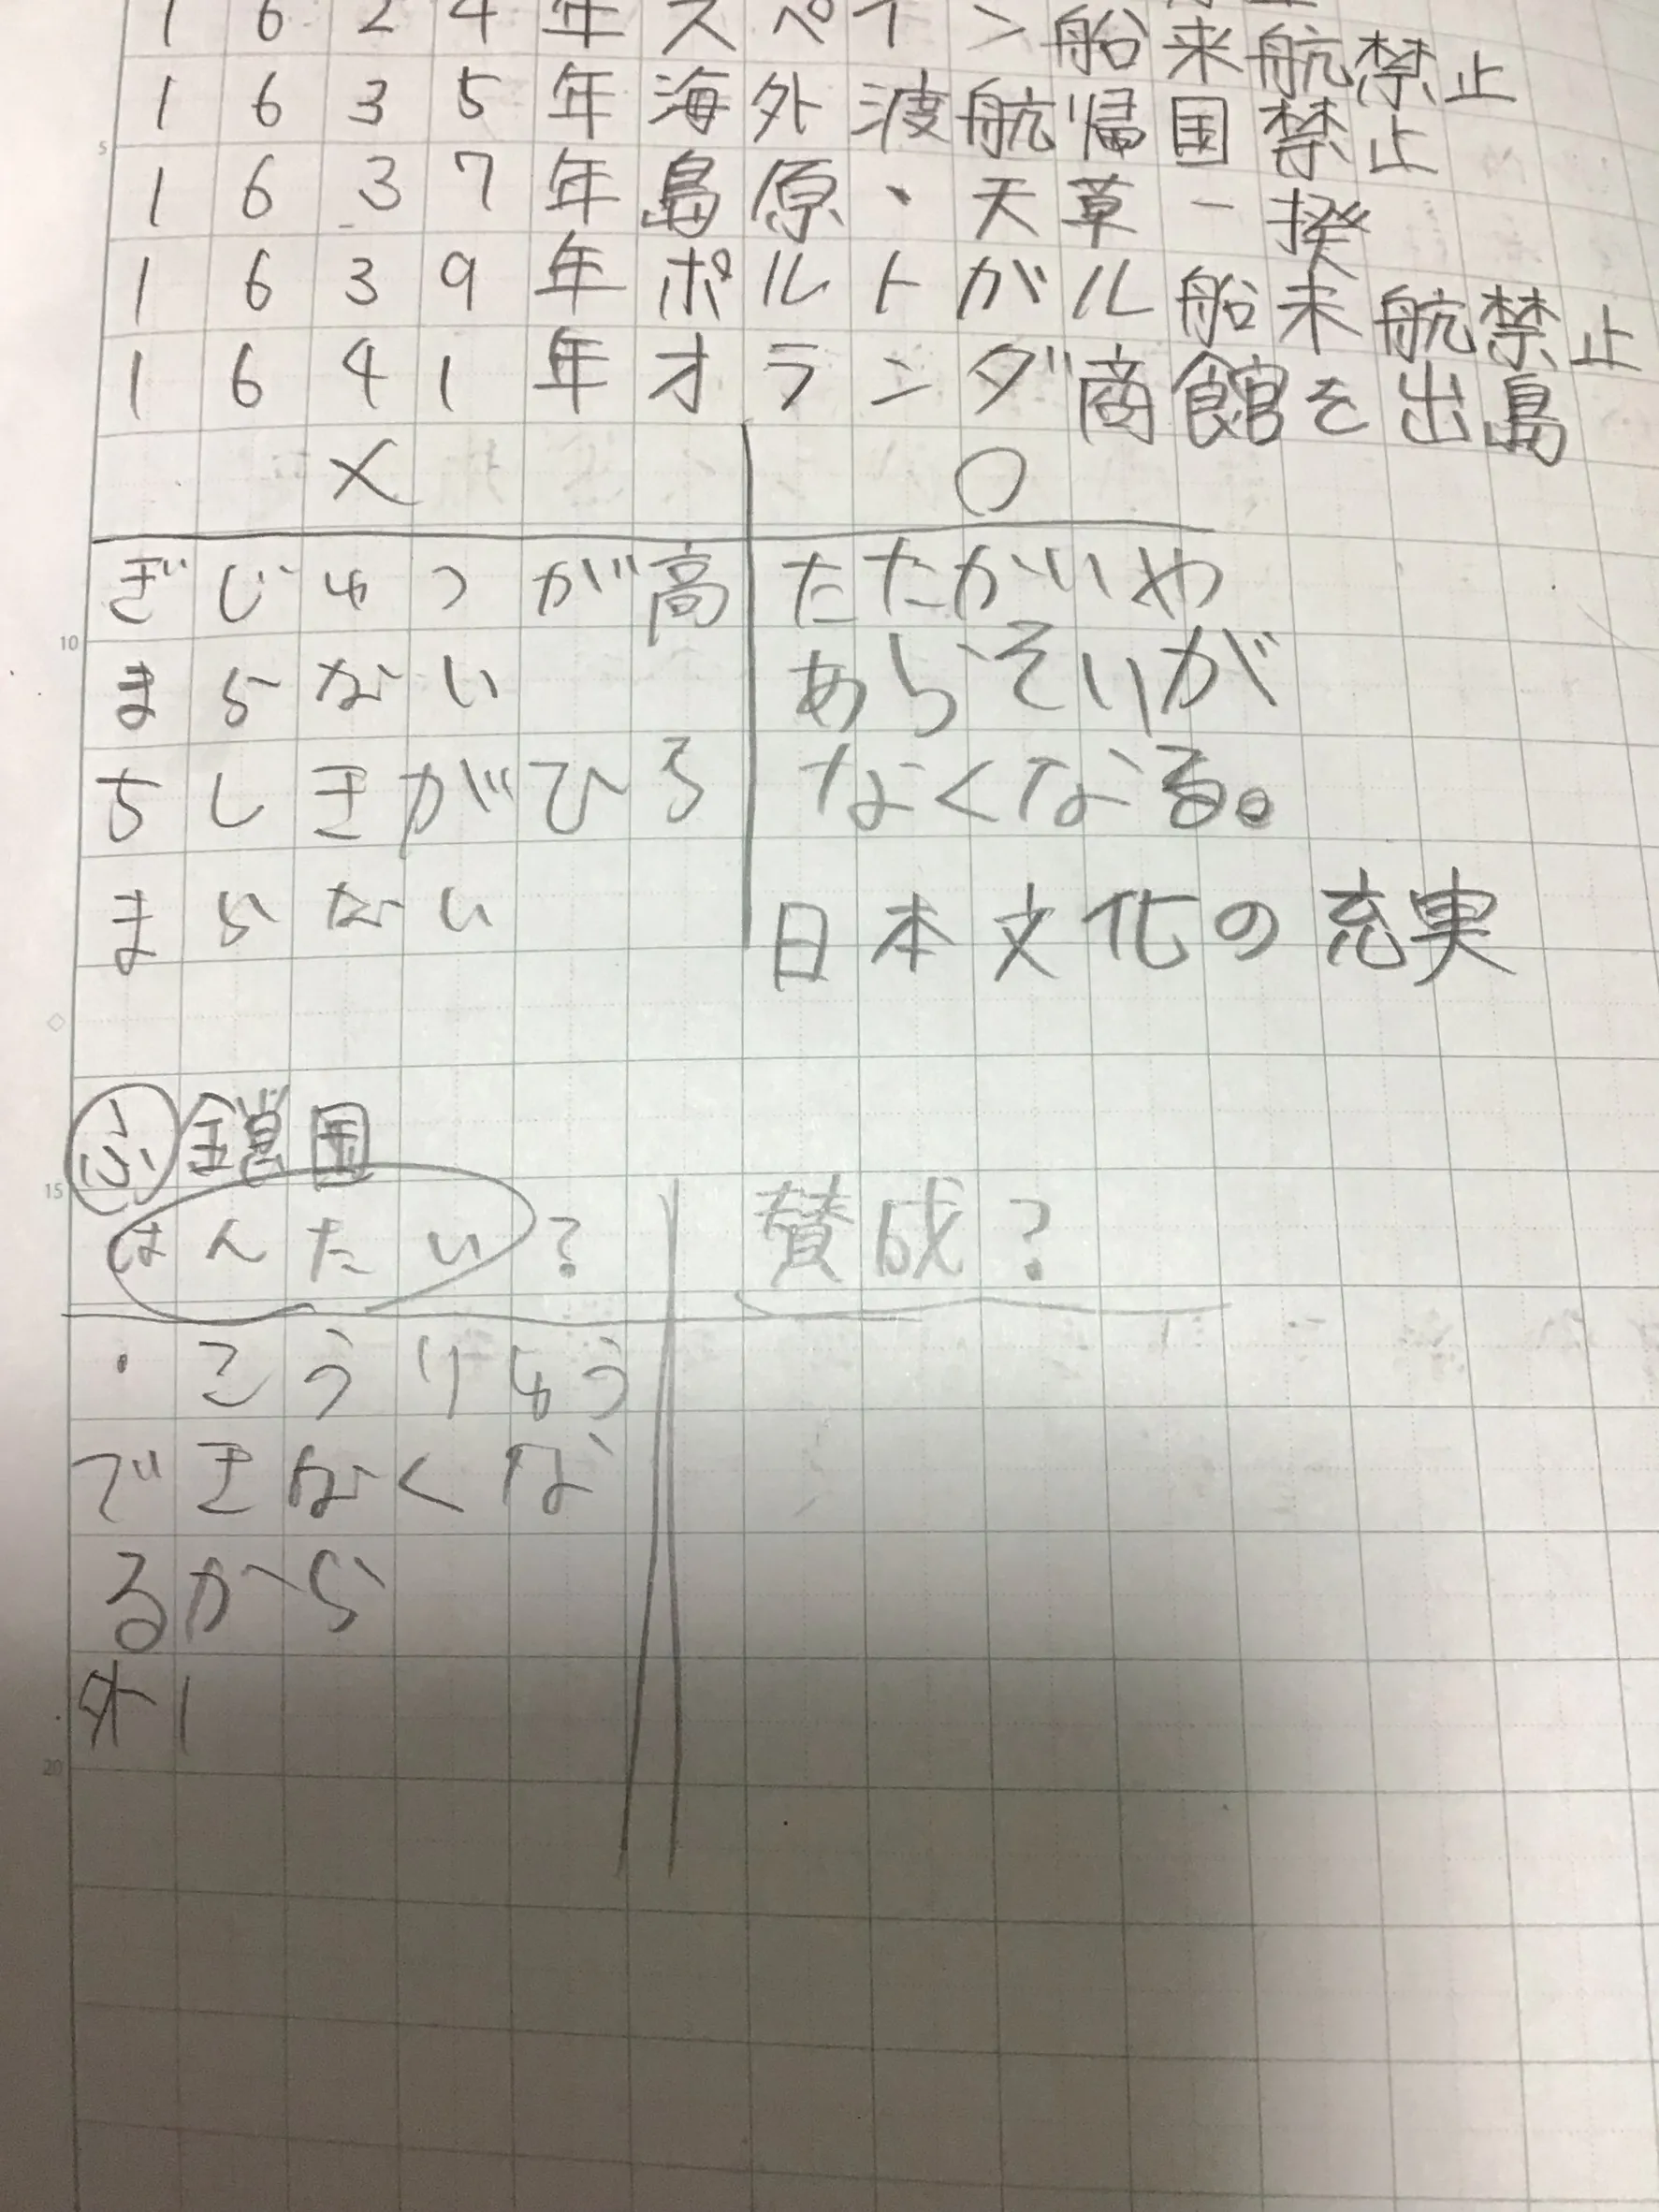 1624年スペイン船来航禁止
1635年海外渡航帰国禁止
1637年島原・天草一揆
1639年ポルトガル船来航禁止
1641年オランダ商館を出島
× ○
ぎじゅつが高 たたかいや
まらない あらそいが
ちしきがひろ なくなる。
まらない 日本文化の充実
ふ 鎖国
はんたい? 賛成?
・こうりゅう
できなくな
るから
外
5
10
15
20